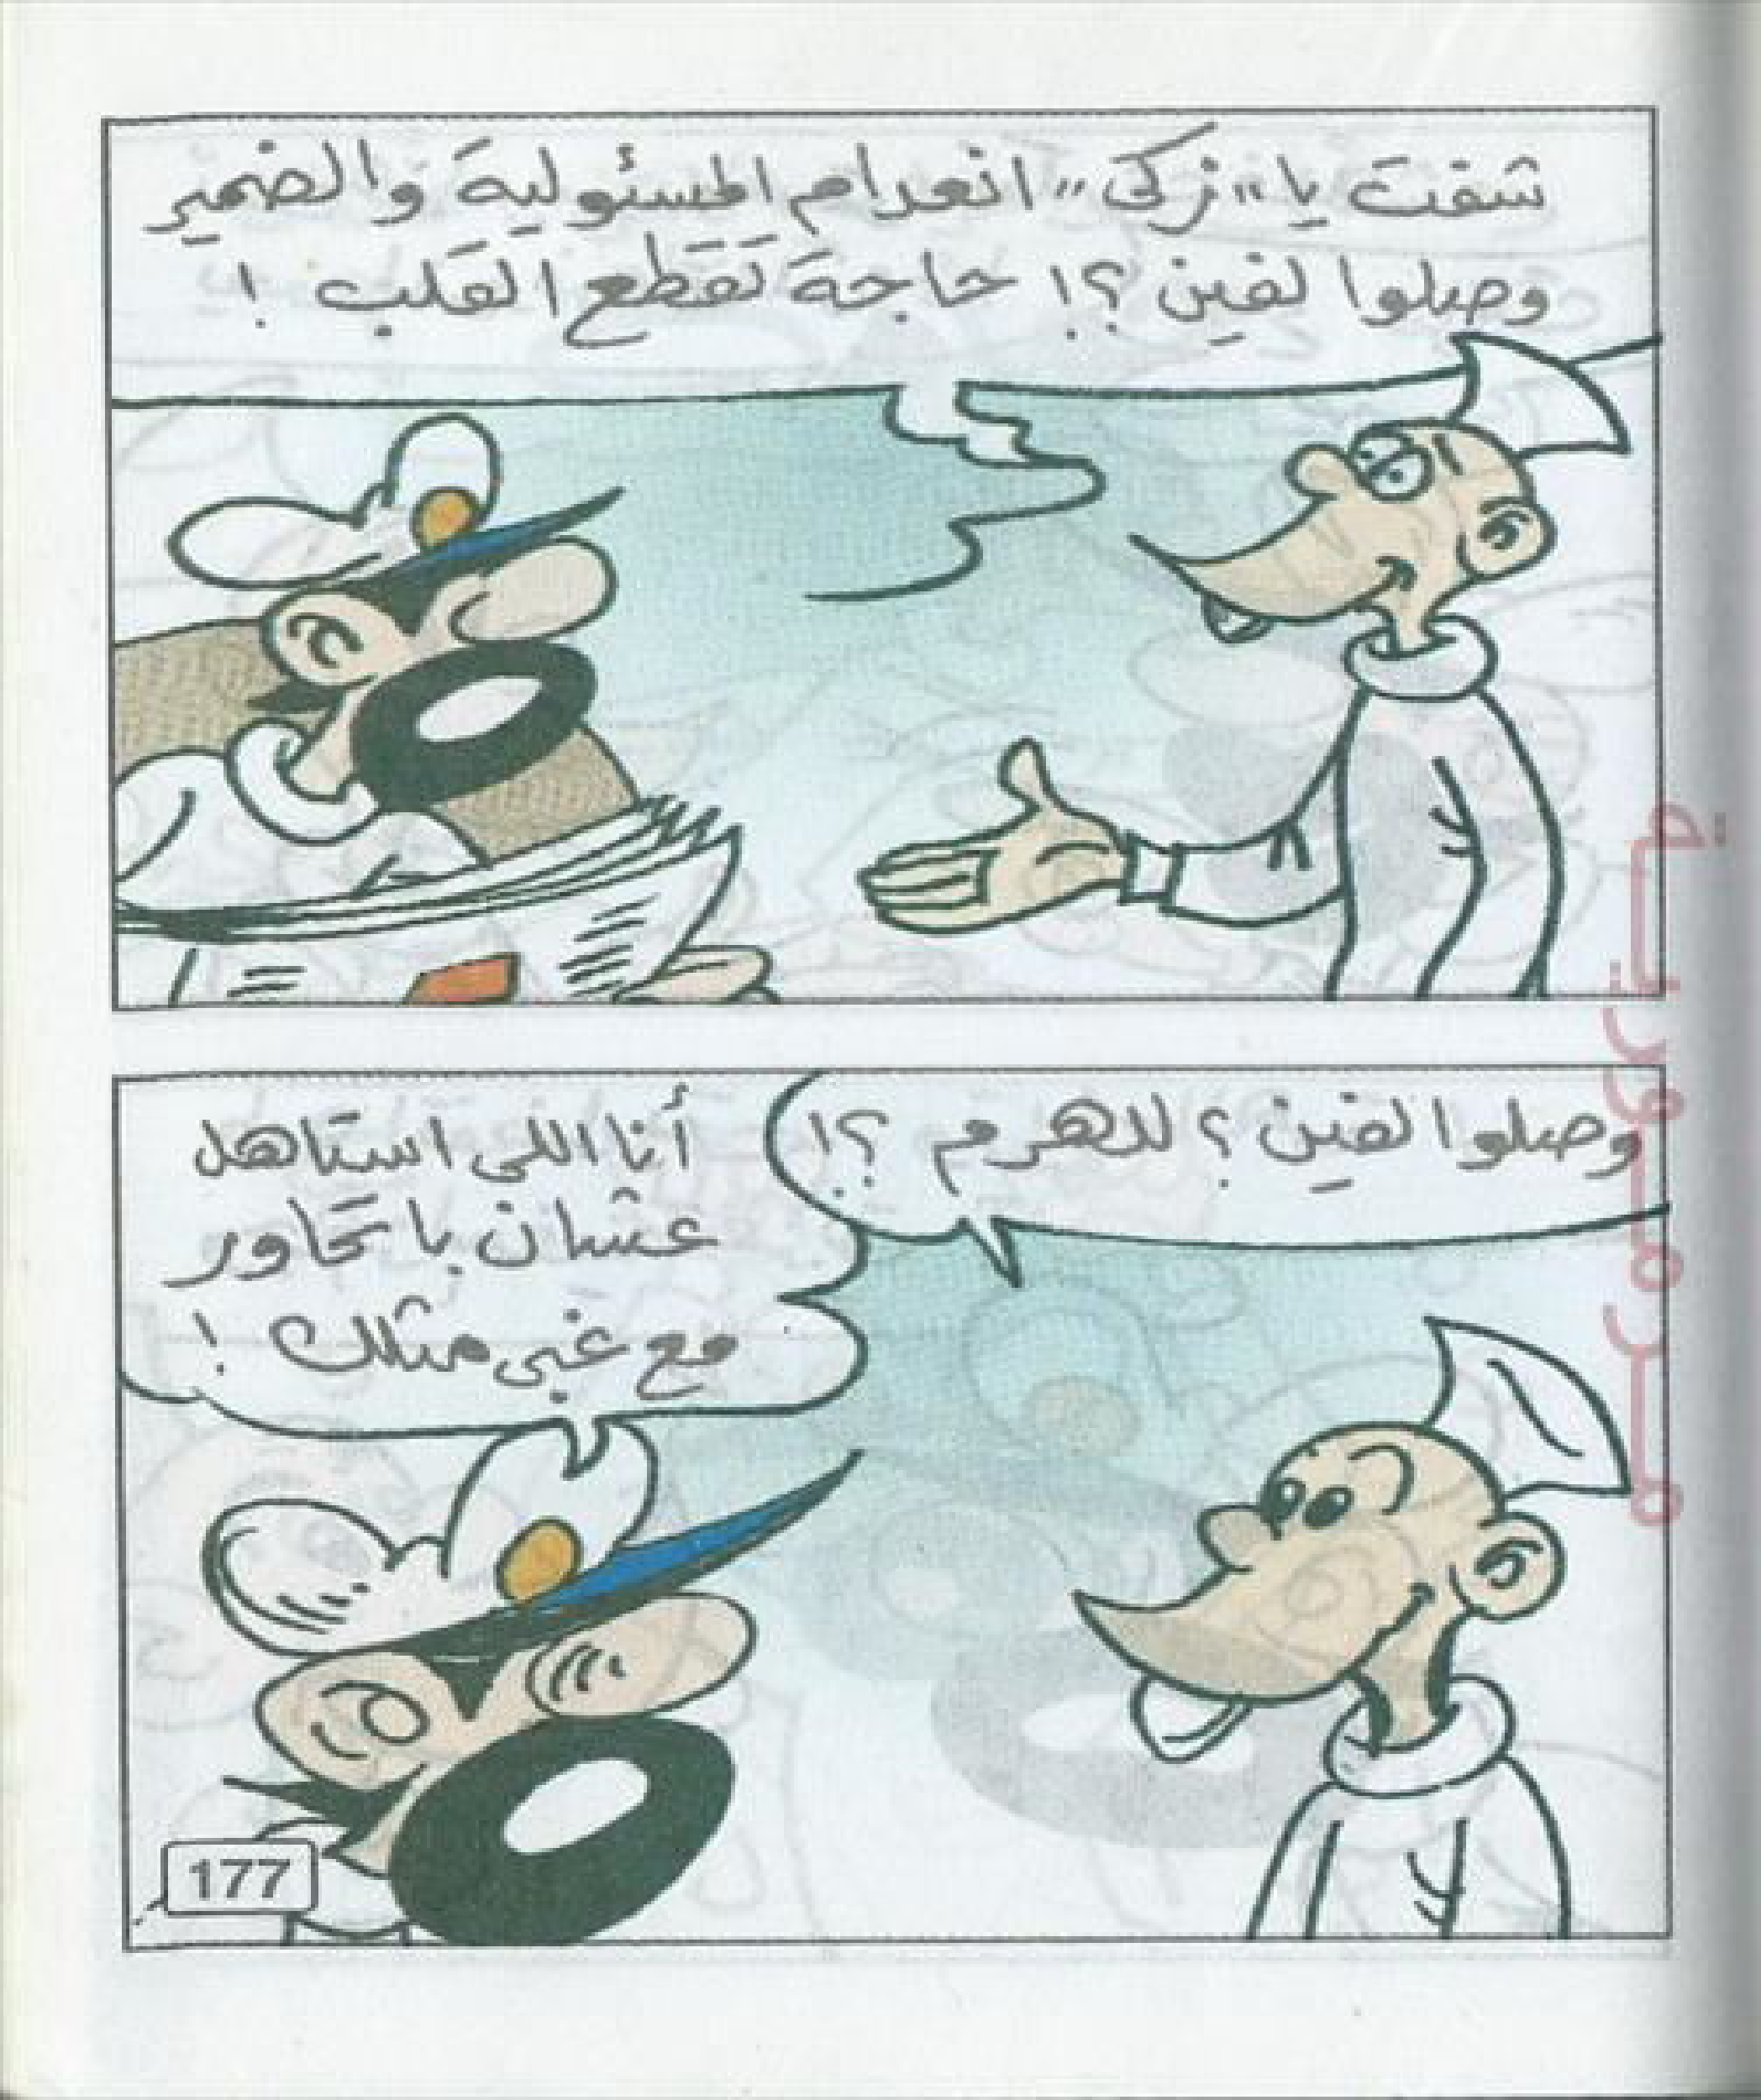 شفت يا "زكى" انعدام المسئولية والضمير
وصلوا لفين ؟! حاجة تقطع القلب !
وصلوا لفين ؟ للهرم ؟!
أنا اللى استاهل
عشان باتحاور
مع غبى مثلك !
177